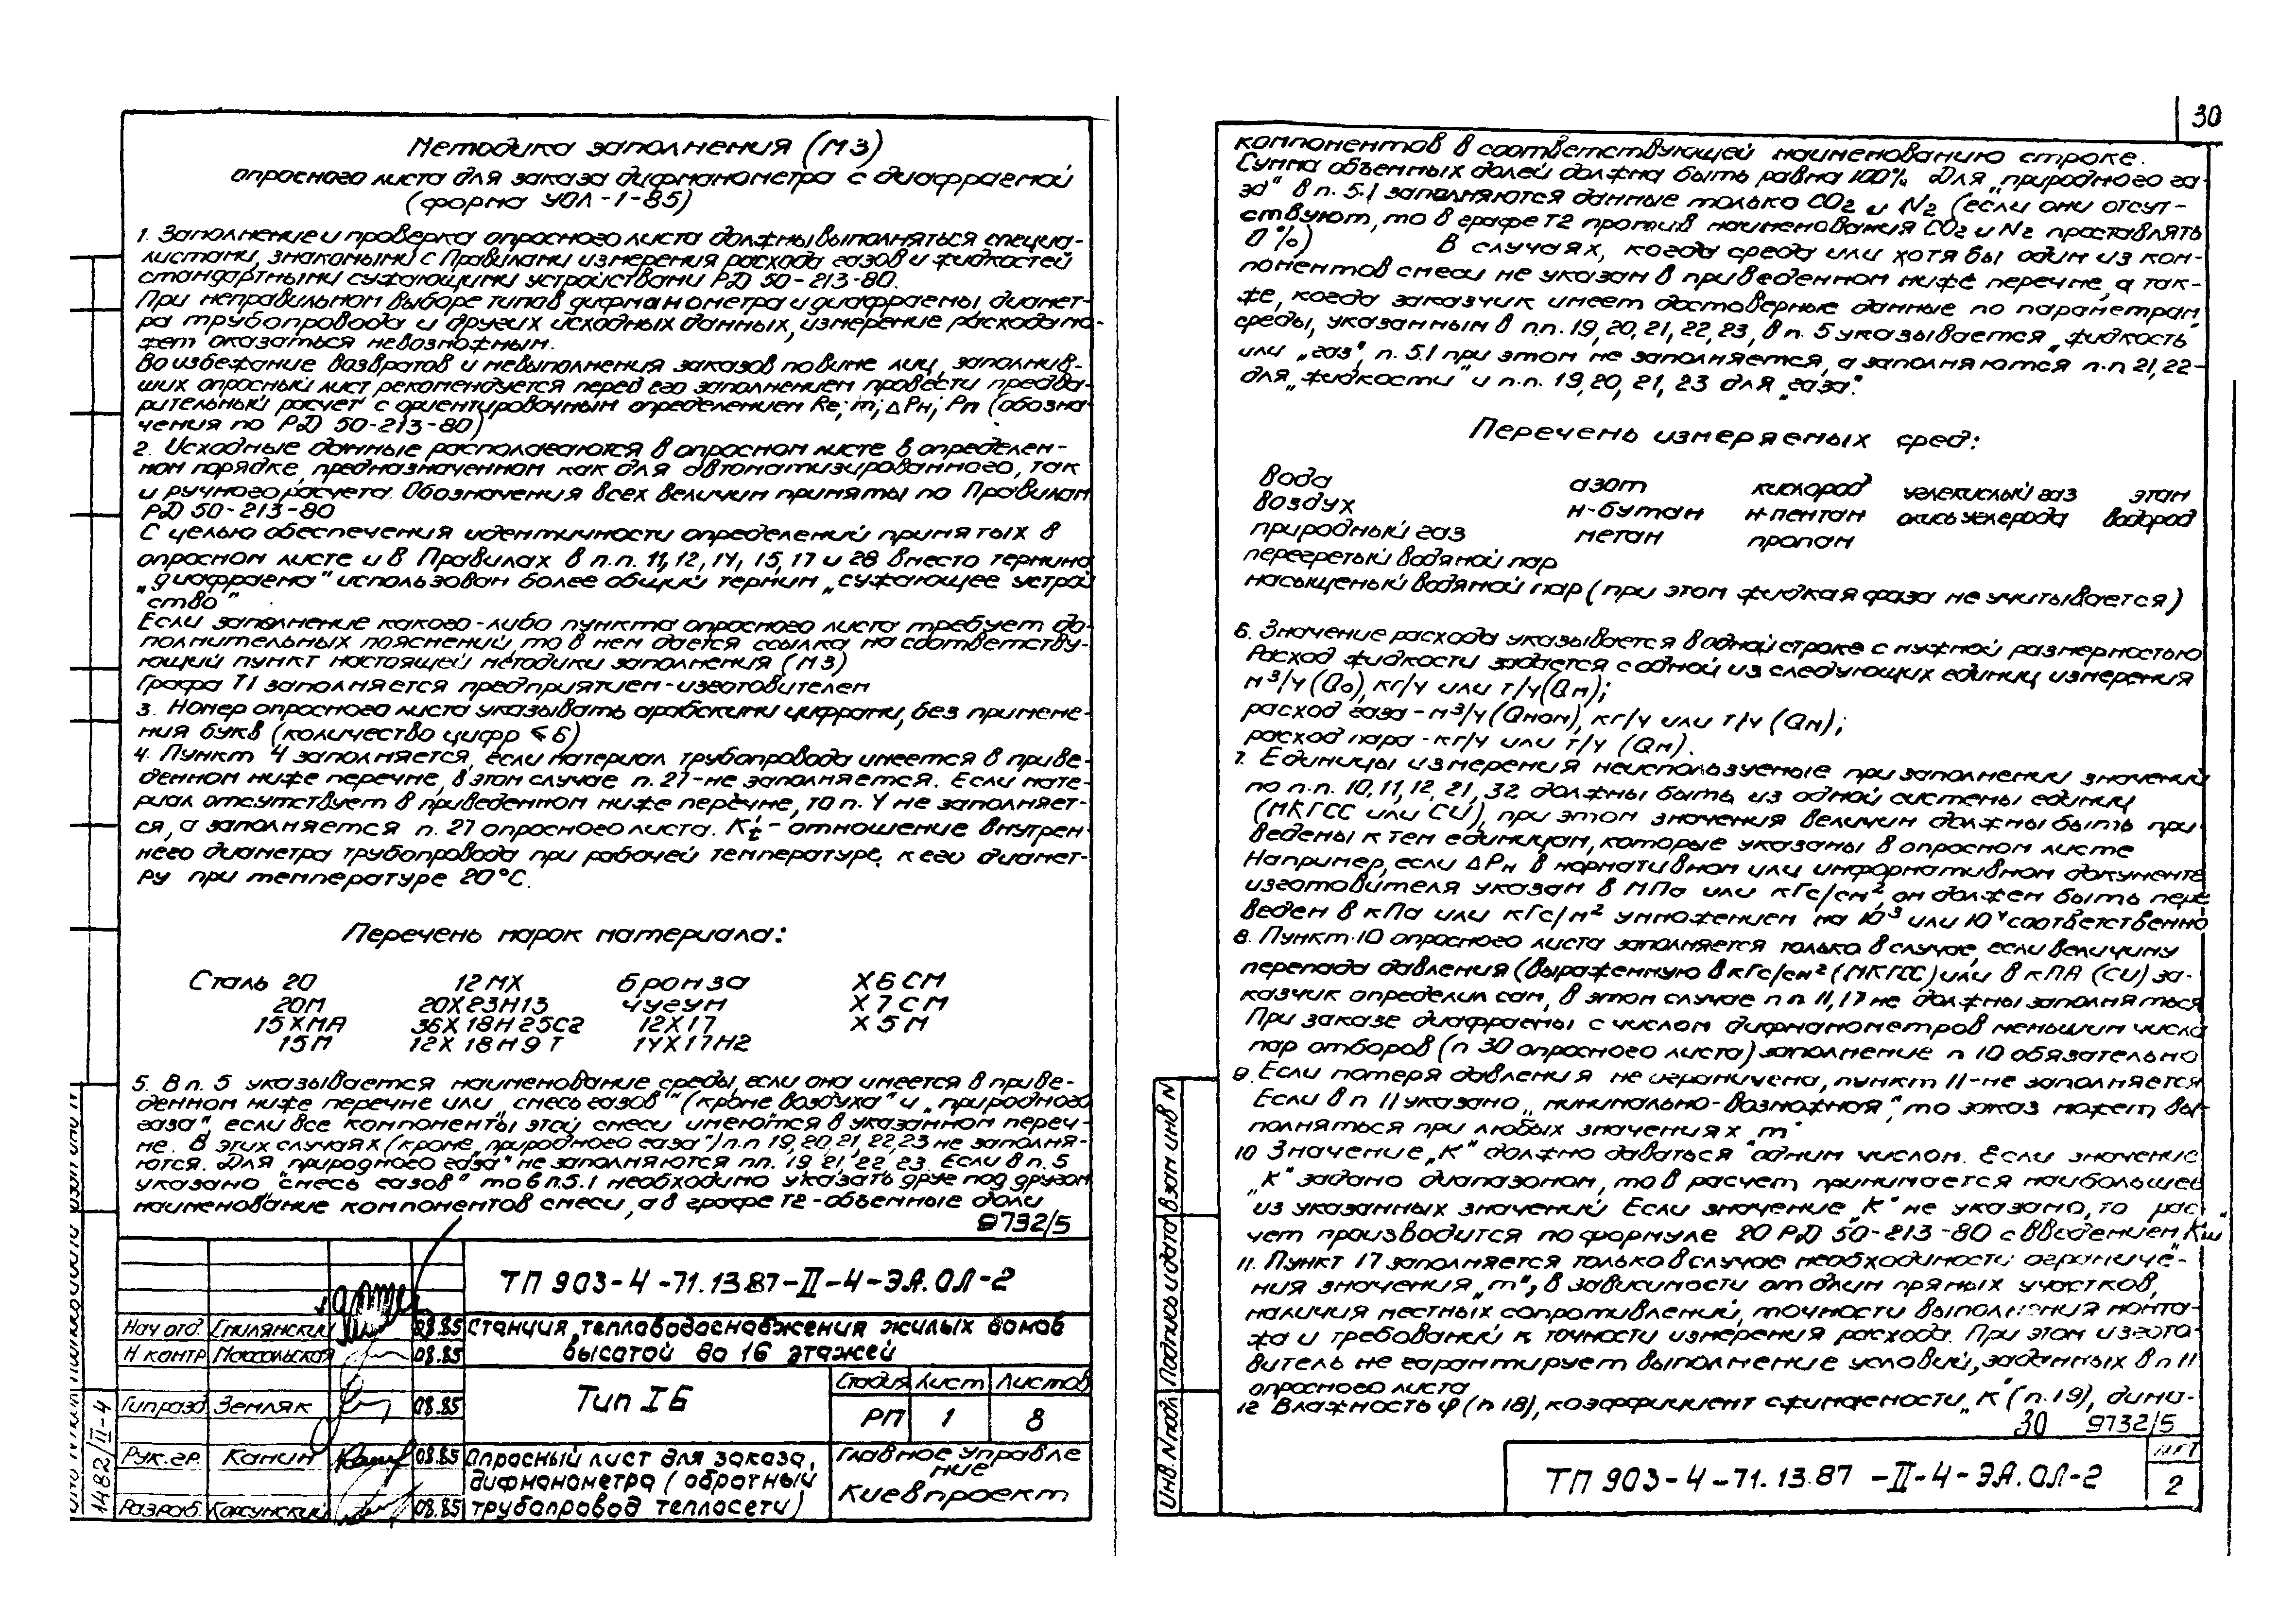 Методика заполнения (МЗ)
опросного листа для заказа дифманометра с диафрагмой
(форма УОЛ-1-85)
1. Заполнение и проверка опросного листа должны выполняться специа-
листами, знакомыми с Правилами измерения расхода газов и жидкостей
стандартными сужающими устройствами РД 50-213-80.
При неправильном выборе типов дифманометра и диафрагмы, диамет-
ра трубопровода и других исходных данных, измерение расхода мо-
жет оказаться невозможным.
Во избежание возвратов и невыполнения заказов по вине лиц, заполнив-
ших опросный лист рекомендуется перед его заполнением провести предва-
рительный расчет с ориентировочным определением Re; m; ΔРн; Рп (обозна-
чения по РД 50-213-80)
2. Исходные данные располагаются в опросном листе в определен-
ном порядке, предназначенном как для автоматизированного, так
и ручного расчета. Обозначения всех величин приняты по Правилам
РД 50-213-80
С целью обеспечения идентичности определений принятых в
опросном листе и в Правилах в п.п. 11, 12, 14, 15, 17 и 28 вместо термина
„диафрагма" использован более общий термин „сужающее устрой
ство"
Если заполнение какого-либо пункта опросного листа требует до-
полнительных пояснений, то в нем дается ссылка на соответству-
ющий пункт настоящей методики заполнения (МЗ)
Графа Т1 заполняется предприятием-изготовителем
3. Номер опросного листа указывать арабскими цифрами, без примене-
ния букв (количество цифр ≤ 6)
4. Пункт 4 заполняется, если материал трубопровода имеется в приве-
денном ниже перечне, в этом случае п. 27-не заполняется. Если мате-
риал отсутствует в приведенном ниже перечне, то п. 4 не заполняет-
ся, а заполняется п. 27 опросного листа. K't - отношение внутрен-
него диаметра трубопровода при рабочей температуре к его диамет-
ру при температуре 20°С.
Перечень марок материала:
Сталь 20 12МХ бронза Х6СМ
20М 20Х23Н13 чугун Х7СМ
15ХМА 36Х18Н25С2 12Х17 Х5М
15М 12Х18Н9Т 14Х17Н2
5. В п. 5 указывается наименование среды, если она имеется в приве-
денном ниже перечне или „смесь газов" (кроме воздуха" и „природного
газа", если все компоненты этой смеси имеются в указанном переч-
не. В этих случаях (кроме „природного газа") п.п 19, 20, 21, 22, 23 не заполня-
ются. Для „природного газа" не заполняются пп. 19 21, 22, 23. Если в п. 5
указано "смесь газов" то в п.5.1 необходимо указать друг под другом
наименование компонентов смеси, а в графе Т2-объемные доли
9732/5
ТП 903-4-71.13.87-II-4-ЭА.ОЛ-2
Нач отд. Смилянский 08.85 Станция тепловодоснабжения жилых домов
Н. контр 08.85 высотой до 16 этажей
Гипразд Земляк 08.85 Тип IБ
Стадия Лист Листов
РП 1 8
Рук. гр. Канин 08.85 Опросный лист для заказа,
дифманометра (обратный
трубопровод теплосети)
Разраб. Корсунский 08.85
Главное управле
ние
Киевпроект
1482/II-4
30
компонентов в соответствующей наименованию строке.
Сумма объемных долей должна быть равна 100%. Для „природного га-
за" в п. 5.1 заполняются данные только СО2 и N2 (если они отсут-
ствуют, то в графе Т2 против наименования СО2 и N2 проставлять
0%) В случаях, когда среда или хотя бы один из ком-
понентов смеси не указан в приведенном ниже перечне, а так-
же, когда заказчик имеет достоверные данные по параметрам
среды, указанным в п.п. 19, 20, 21, 22, 23, в п. 5 указывается „жидкость"
или „газ", п. 5.1 при этом не заполняется, а заполняются п.п 21, 22-
для „жидкости" и п.п. 19, 20, 21, 23 для „газа".
Перечень измеряемых сред:
вода азот кислород углекислый газ этан
воздух н-бутан н-пентан окись углерода водород
природный газ метан пропан
перегретый водяной пар
насыщеный водяной пар (при этом жидкая фаза не учитывается)
6. Значение расхода указывается в одной строке с нужной размерностью
Расход жидкости задается с одной из следующих единиц измерения
м³/ч (Qо), кг/ч или т/ч (Qм);
расход газа - м³/ч (Qном), кг/ч или т/ч (Qм);
расход пара - кг/ч или т/ч (Qм).
7. Единицы измерения неиспользуемые при заполнении значений
по п.п. 10, 11, 12, 21, 32 должны быть из одной системы единиц
(МКГСС или СИ), при этом значения величин должны быть при-
ведены к тем единицам, которые указаны в опросном листе
Например, если ΔРн в нормативном или информативном документе
изготовителя указан в МПа или кгс/см², он должен быть пере
веден в кПа или кгс/м² умножением на 10³ или 10⁴ соответственно
8. Пункт 10 опросного листа заполняется только в случае, если величину
перепада давления (выраженную в кгс/см² (МКГСС) или в кПА (СИ) за-
казчик определил сам, в этом случае п п 11, 17 не должны заполняться
При заказе диафрагмы с числом дифманометров меньшим числа
пар отборов (п 30 опросного листа) заполнение п 10 обязательно
9. Если потеря давления не ограничена, пункт 11-не заполняется
Если в п 11 указано „минимально-возможная", то заказ может вы-
полняться при любых значениях "m"
10 Значение „К" должно даваться одним числом. Если значение
„К" задано диапазоном, то в расчет принимается наибольшее
из указанных значений Если значение „К" не указано, то рас-
чет производится по формуле 20 РД 50-213-80 с введением „Кш"
11. Пункт 17 заполняется только в случае необходимости ограниче-
ния значения „m", в зависимости от длин прямых участков,
наличия местных сопротивлений, точности выполнения монта-
жа и требований к точности измерения расхода. При этом изгото-
витель не гарантирует выполнение условий, заданных в п 11
опросного листа
12 Влажность φ (п 18), коэффициент сжимаемости „К" (п. 19), дина-
30 9732/5
ТП 903-4-71.13.87-II-4-ЭА.ОЛ-2
лист
2
Инв. N подл Подпись и дата Взам инв N